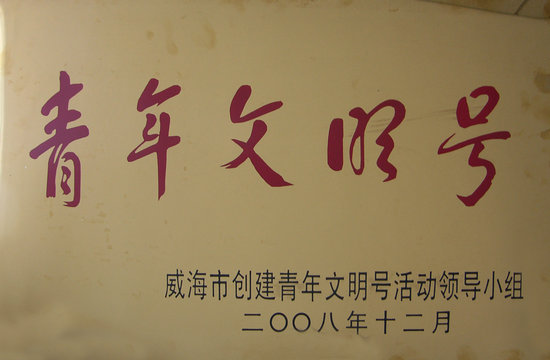 青年文明号
威海市创建青年文明号活动领导小组
二〇〇八年十二月